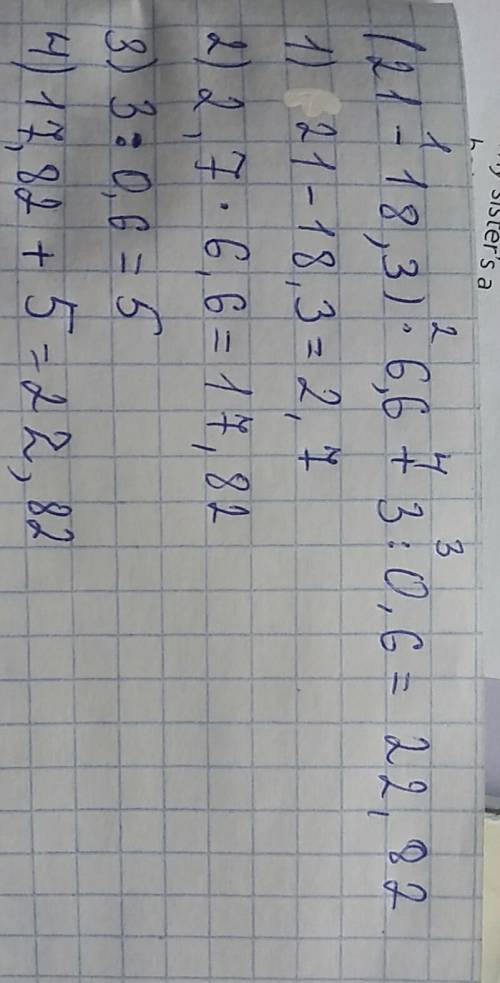 my sister's a
1 2 4 3
(21 - 18,3) · 6,6 + 3 : 0,6 = 22,82
1) 21 - 18,3 = 2,7
2) 2,7 · 6,6 = 17,82
3) 3 : 0,6 = 5
4) 17,82 + 5 = 22,82